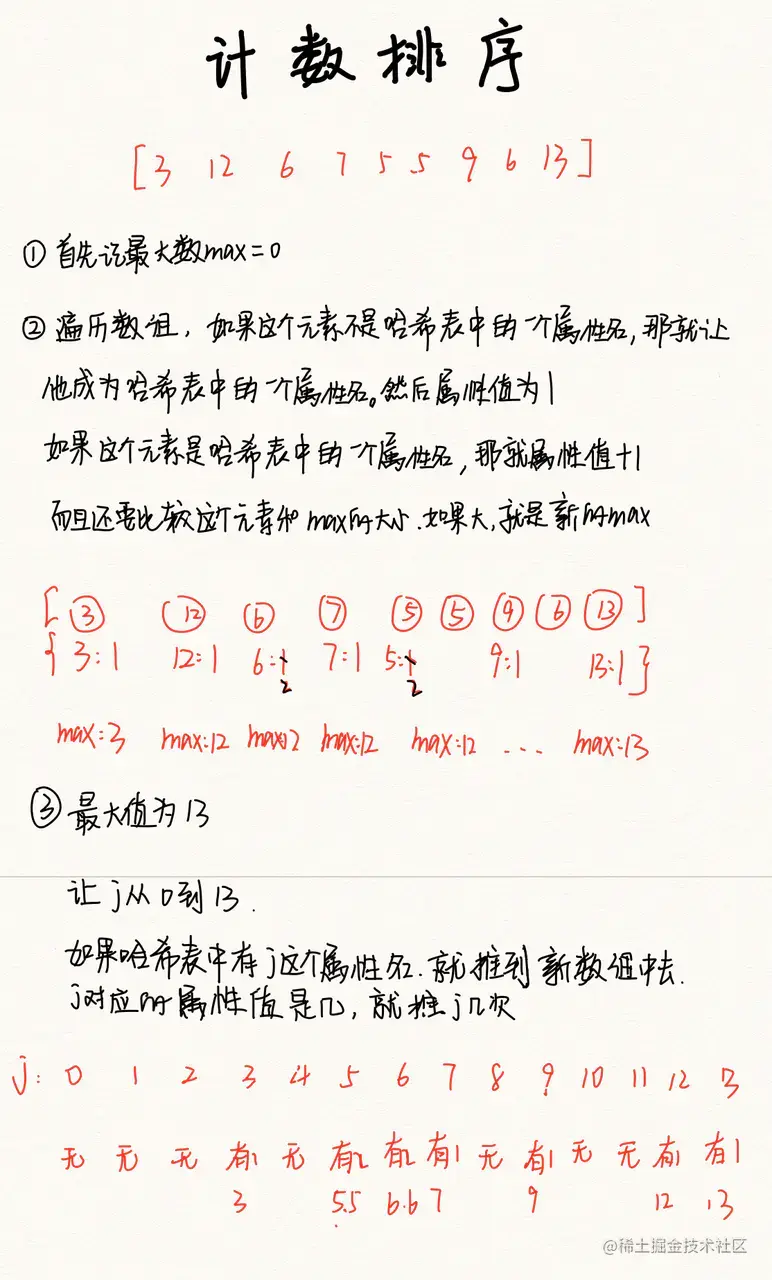 计数排序
[3 12 6 7 5 5 9 6 13]
① 首先记最大数max=0
② 遍历数组，如果这个元素不是哈希表中的一个属性名，那就让
他成为哈希表中的一个属性名。然后属性值为1
如果这个元素是哈希表中的一个属性名，那就属性值+1
而且还要比较这个元素和max的大小.如果大，就是新的max
[③ ⑫ ⑥ ⑦ ⑤ ⑤ ⑨ ⑥ ⑬]
{3:1 12:1 6:1 7:1 5:1 9:1 13:1}
2 2
max:3 max:12 max:12 max:12 max:12 ... max:13
③ 最大值为13
让j从0到13.
如果哈希表中有j这个属性名.就推到新数组中去.
j对应的属性值是几，就推j几次
j: 0 1 2 3 4 5 6 7 8 9 10 11 12 13
无 无 无 有1 无 有2 有2 有1 无 有1 无 无 有1 有1
3 5.5 6.6 7 9 12 13
@稀土掘金技术社区